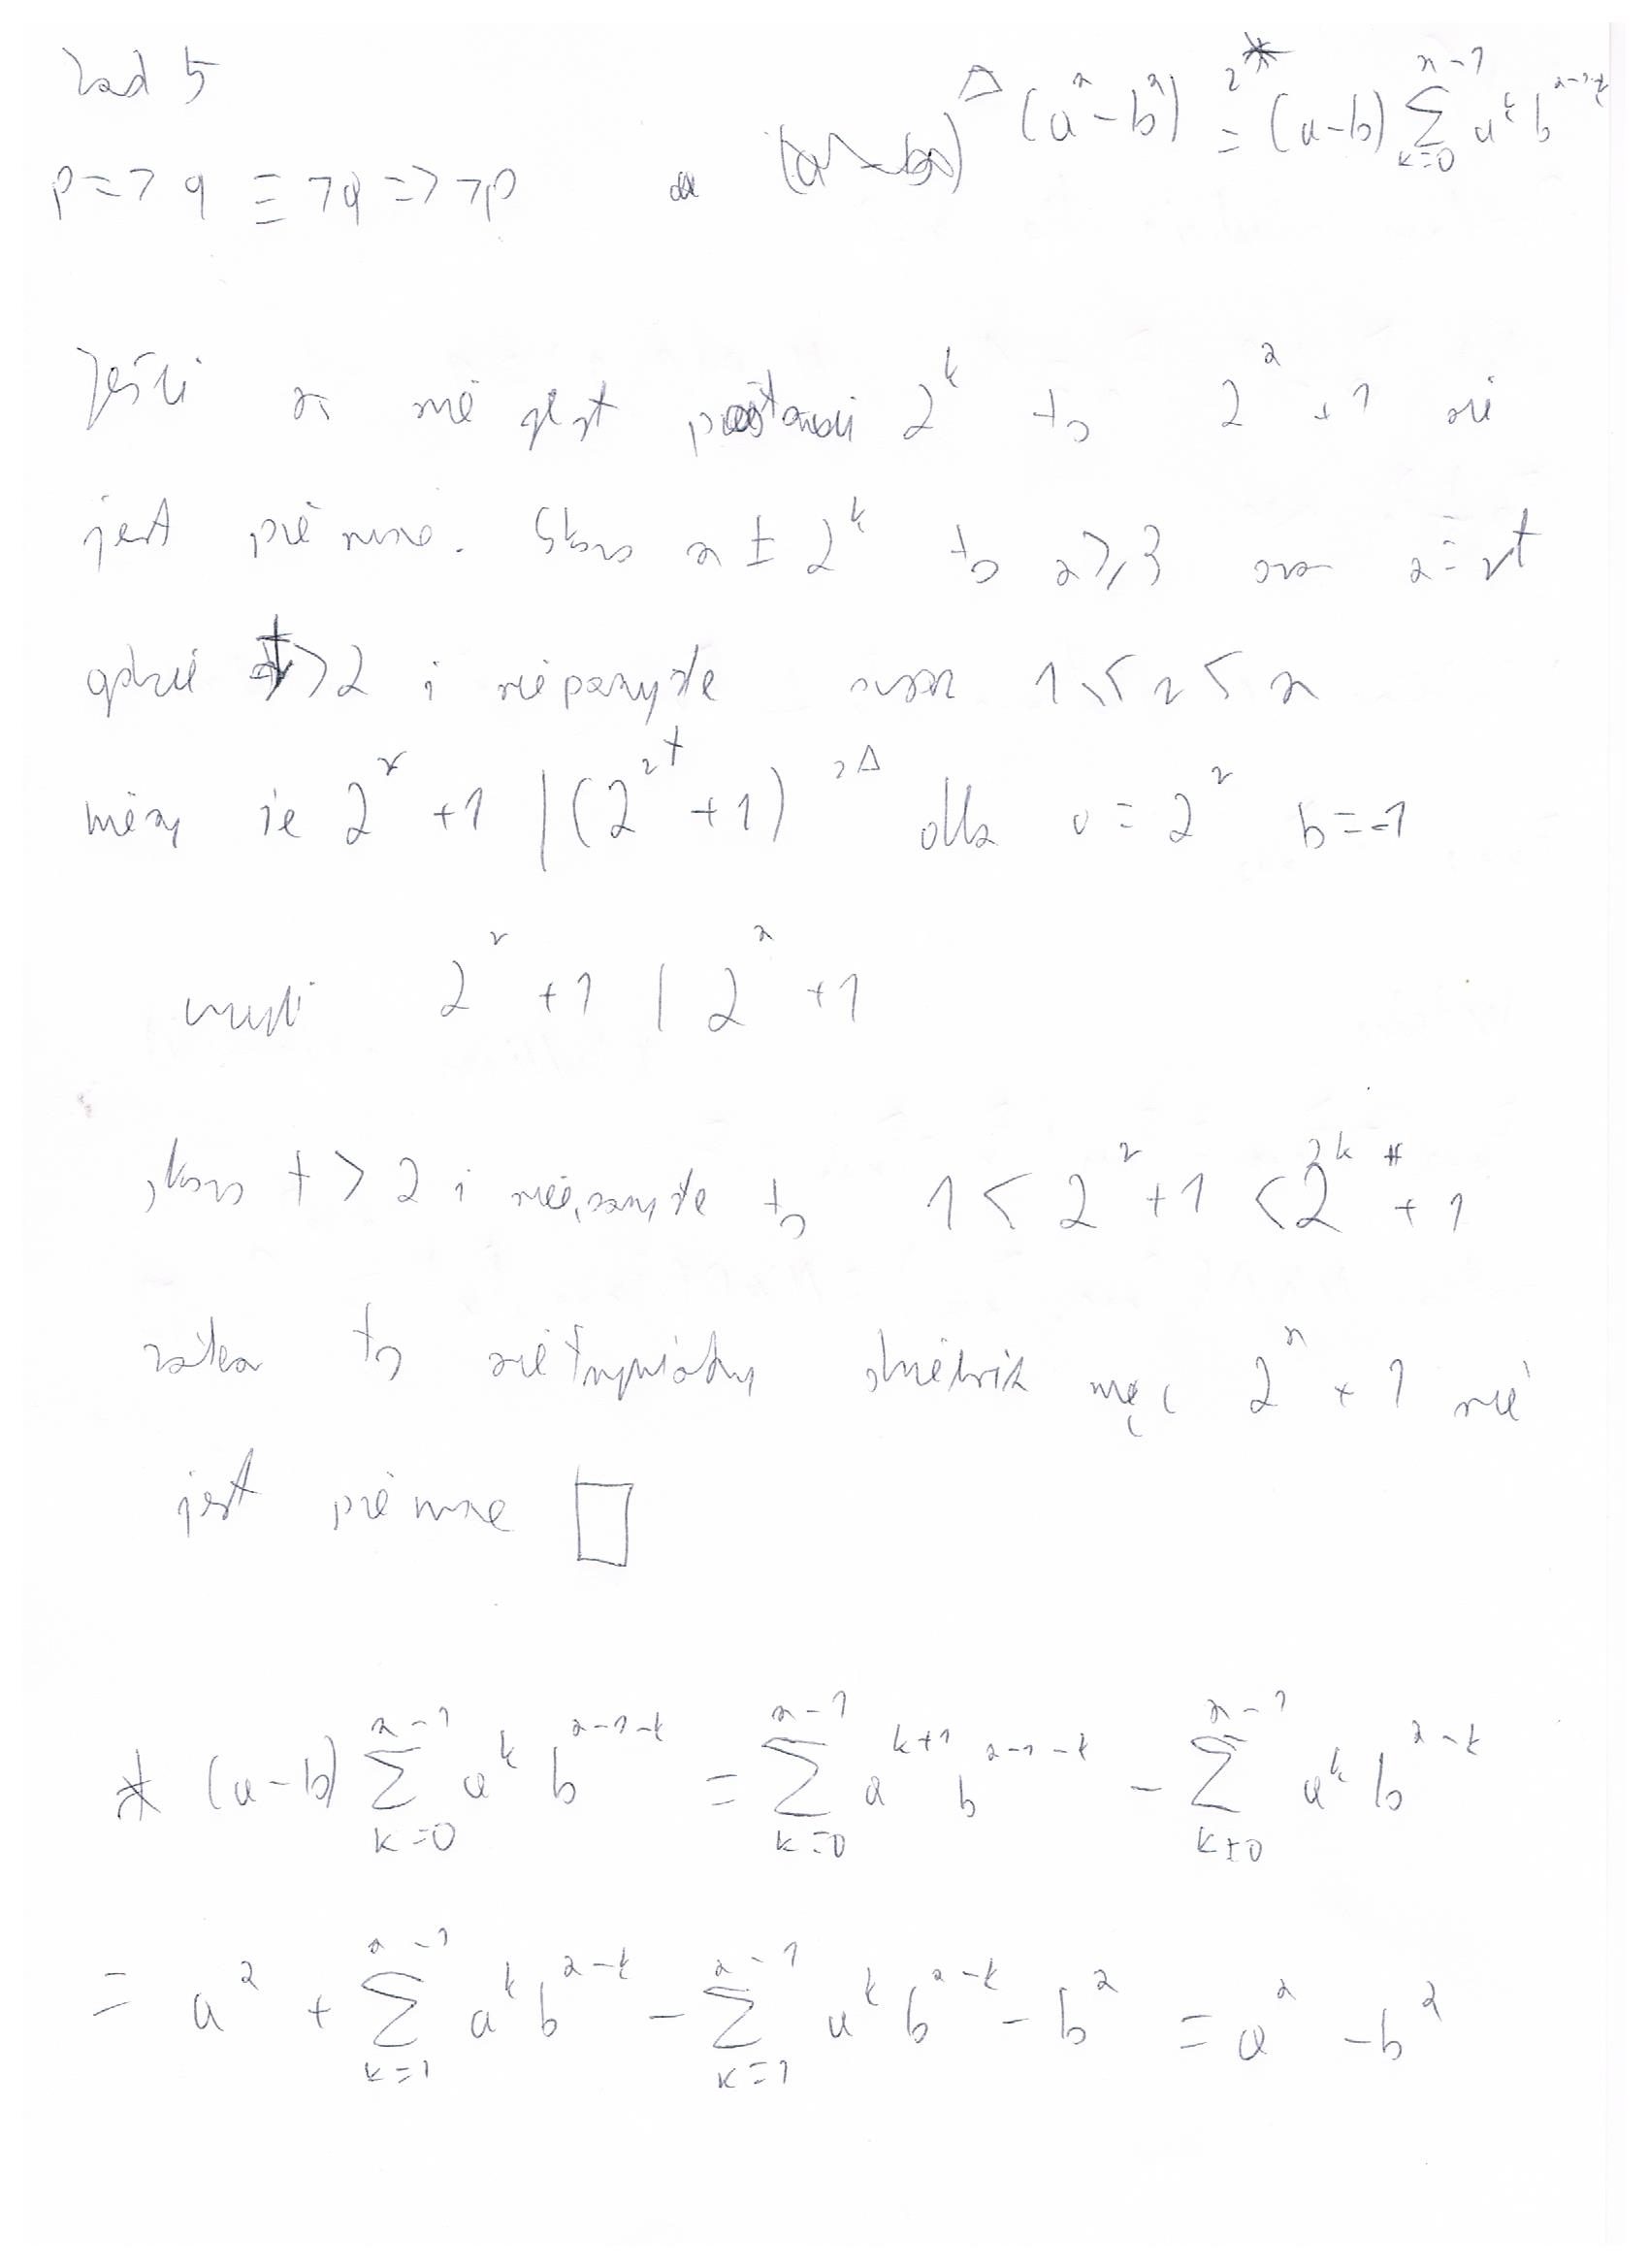 Zad 5
p => q ≡ ¬q => ¬p △ (a^n - b^n) =^{z*} (a-b) ∑_{k=0}^{n-1} a^k b^{n-1-k}
Jeśli n nie jest postaci 2^k to 2^n + 1 nie
jest pierwsze. Skoro n ≠ 2^k to n ≥ 3 oraz n = rt
gdzie t > 2 i nieparzyste oraz 1 ≤ r < n
wiemy że 2^r + 1 | (2^{rt} + 1) z △ dla a = 2^r b = -1
czyli 2^r + 1 | 2^n + 1
skoro t > 2 i nieparzyste to 1 < 2^r + 1 < 2^{rt} + 1
zatem to nietrywialny dzielnik więc 2^n + 1 nie
jest pierwsze □
* (a-b) ∑_{k=0}^{n-1} a^k b^{n-1-k} = ∑_{k=0}^{n-1} a^{k+1} b^{n-1-k} - ∑_{k=0}^{n-1} a^k b^{n-k}
= a^n + ∑_{k=1}^{n-1} a^k b^{n-k} - ∑_{k=1}^{n-1} a^k b^{n-k} - b^n = a^n - b^n